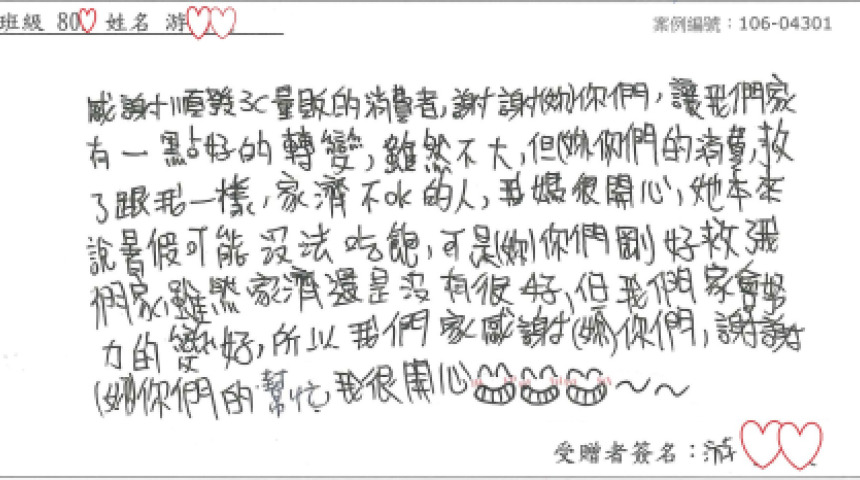 班級 80 姓名 游
案例編號：106-04301
感謝順發3C量販的消費者,謝謝(妳)你們,讓我們家
有一點好的轉變,雖然不大,但(妳)你們的消費,救
了跟我一樣,家濟不ok的人,我媽很開心,她本來
說暑假可能沒法吃飽,可是(妳)你們剛好救我
們家,雖然家濟還是沒有很好,但我們家會努
力的變好,所以我們家感謝(妳)你們,謝謝
(妳)你們的幫忙,我很開心～～
受贈者簽名：游